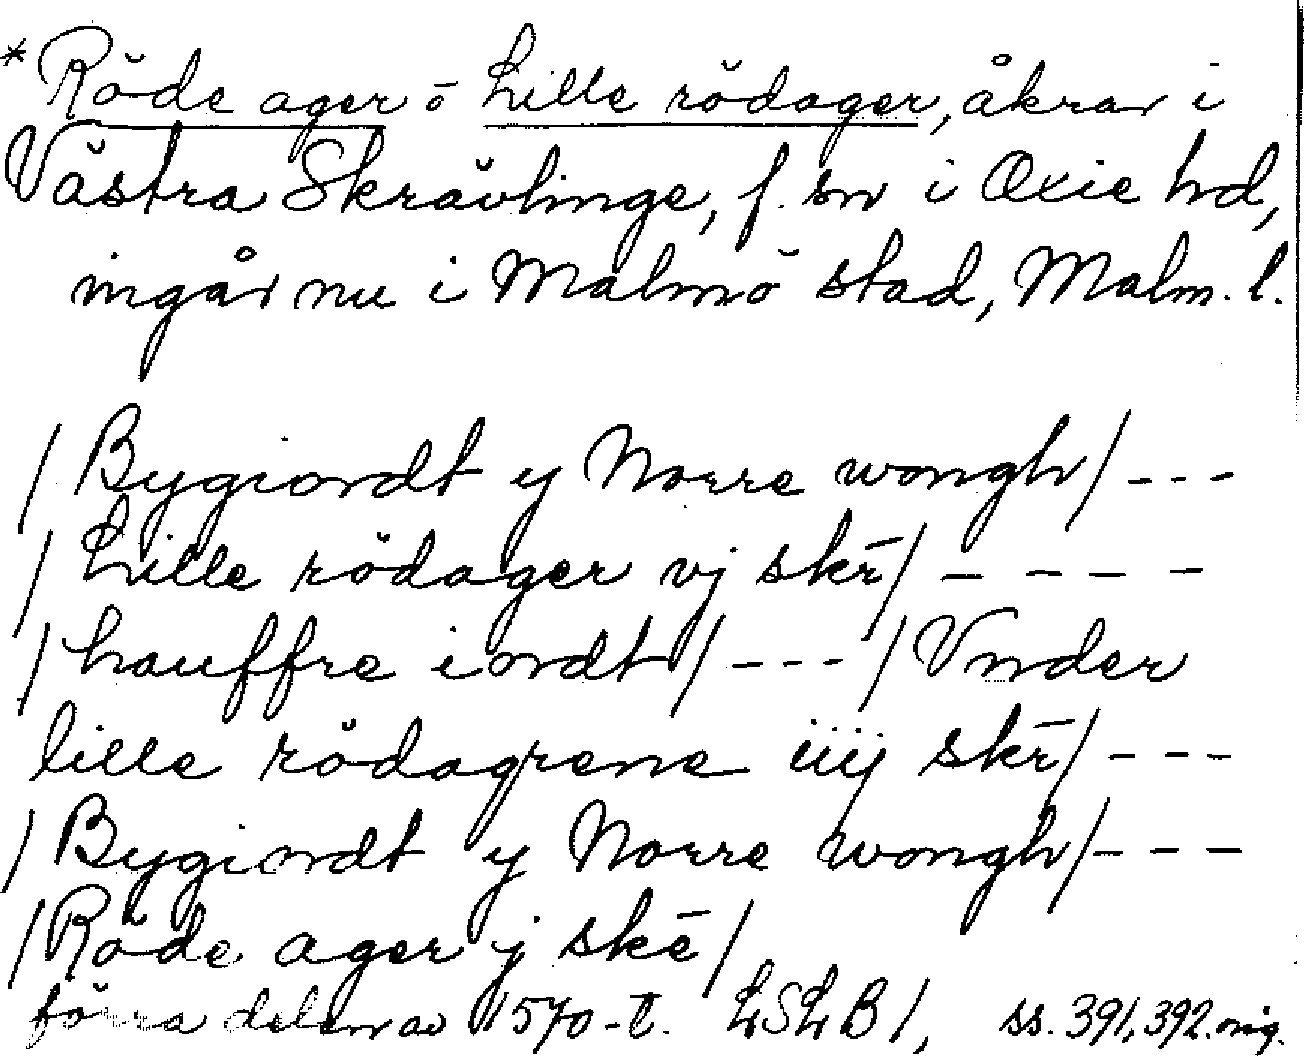 *Röde ager o Lille rödager, åkrar i
Västra Skrävlinge, f. sn i Oxie hd,
ingår nu i Malmö stad, Malm. l.
/Bygiordt y Norre wongh/---
/Lille rödager vj skr/----
/hauffre iordt/---/Vnder
lille rödagrene iiij skr/---
/Bygiordt y Norre wongh/---
/Röde ager j ske/
förra delen av 1570-t. LSLB1, ss. 391, 392. orig.